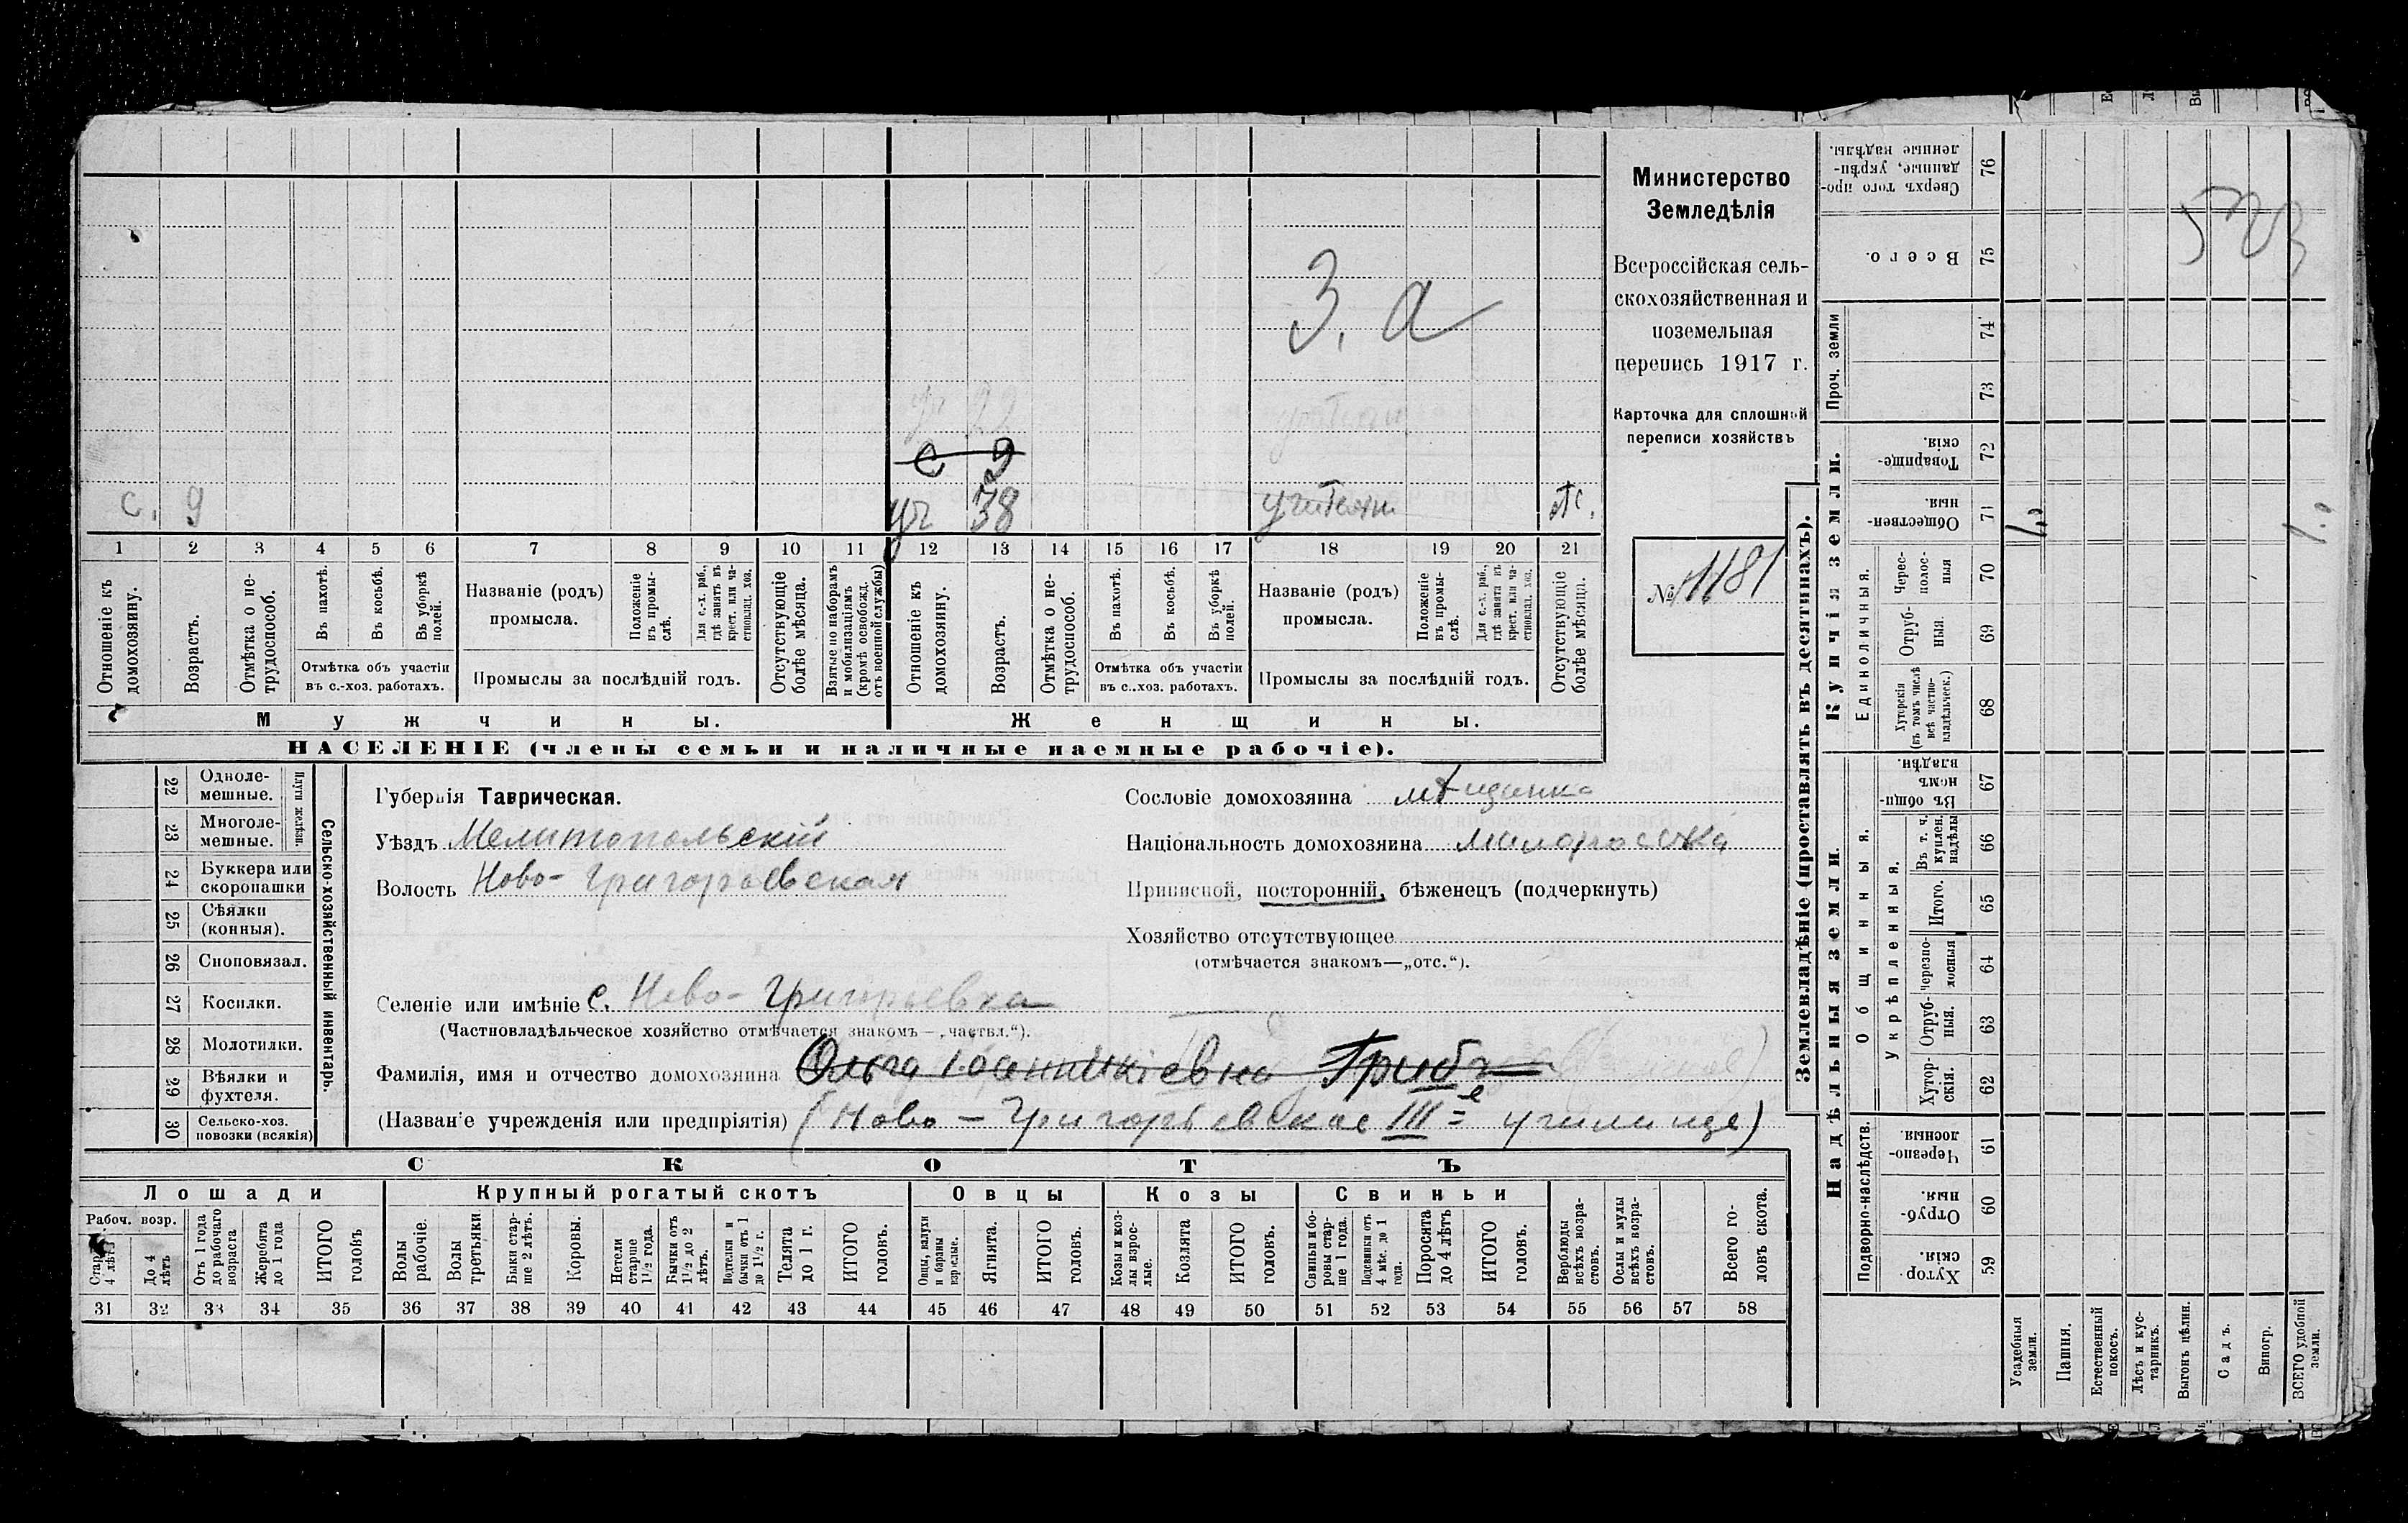 Министерство
Земледѣлія
Всероссійская сель-
скохозяйственная и
поземельная
перепись 1917 г.
Карточка для сплошной
переписи хозяйствъ
№ 1181
3. а
с 9
с. 9
уч 38
1 2 3 4 5 6 7 8 9 10 11 12 13 14 15 16 17 18 19 20 21
Отношеніе къ домохозяину.
Возрастъ.
Отмѣтка о не-трудоспособ.
Въ пахотѣ.
Въ косьбѣ.
Въ уборкѣ полей.
Отмѣтка объ участіи
въ с.-хоз. работахъ.
Названіе (родъ)
промысла.
Положеніе въ промы-слѣ.
Для с.-х. раб., гдѣ занятъ въ крест. или ча-стновлад. хоз.
Промыслы за послѣдній годъ.
Отсутствующіе болѣе мѣсяца.
Взятые по наборамъ и мобилизаціямъ (кромѣ освобожд. отъ военной службы)
Отношеніе къ домохозяину.
Возрастъ.
Отмѣтка о не-трудоспособ.
Въ пахотѣ.
Въ косьбѣ.
Въ уборкѣ полей.
Отмѣтка объ участіи
въ с.-хоз. работахъ.
Названіе (родъ)
промысла.
Положеніе въ промы-слѣ.
Для с.-х. раб., гдѣ занята въ крест. или ча-стновлад. хоз.
Промыслы за послѣдній годъ.
Отсутствующіе болѣе мѣсяца.
Мужчины.
Женщины.
НАСЕЛЕНІЕ (члены семьи и наличные наемные рабочіе).
22 Одноле-мешные.
23 Многоле-мешные.
Плуги желѣзн.
24 Буккера или скоропашки
25 Сѣялки (конныя).
26 Сноповязал.
27 Косилки.
28 Молотилки.
29 Вѣялки и фухтеля.
30 Сельско-хоз. повозки (всякія)
Сельско-хозяйственный инвентарь.
Губернія Таврическая.
Уѣздъ Мелитопольскій
Волость Ново-Григорьевская
Селеніе или имѣніе с. Ново-Григорьевка
(Частновладѣльческое хозяйство отмѣчается знакомъ—„частвл.“).
Фамилія, имя и отчество домохозяина Ольга Іоанникіевна Грибъ
(Названіе учрежденія или предпріятія) (Ново-Григорьевское III=е училище)
Сословіе домохозяина мѣщанка
Національность домохозяина малоросска
Приписной, посторонній, бѣженецъ (подчеркнуть)
Хозяйство отсутствующее
(отмѣчается знакомъ—„отс.“).
СКОТЪ
Лошади
Крупный рогатый скотъ
Овцы
Козы
Свиньи
Рабоч. возр.
До 4 лѣтъ
Отъ 1 года до рабочаго возраста
Жеребята до 1 года
ИТОГО головъ
Волы рабочіе.
Волы третьяки.
Быки стар-ше 2 лѣтъ.
Коровы.
Нетели старше 1½ года.
Бычки отъ 1½ до 2 лѣтъ.
Подтелки и бычки отъ 1 до 1½ г.
Телята до 1 г.
ИТОГО головъ.
Овцы, валухи и бараны взрослые.
Ягнята.
ИТОГО головъ.
Козы и коз-лы взрос-лые.
Козлята
ИТОГО головъ.
Свиньи и бо-ровы стар-ше 1 года.
Подсвинки отъ 4 мѣс. до 1 года.
Поросята до 4 лѣтъ
ИТОГО головъ.
Верблюды всѣхъ возра-стовъ.
Ослы и мулы всѣхъ возра-стовъ.
Всего го-ловъ скота.
31 32 33 34 35 36 37 38 39 40 41 42 43 44 45 46 47 48 49 50 51 52 53 54 55 56 57 58
Землевладѣніе (проставлять въ десятинахъ).
Сверхъ того про-данные, укрѣп-ленные надѣлы. 76
Всего. 75
Проч. земли
74
73
Купчія земли.
Товарище-скія. 72
Обществен-ныя. 71
Единоличныя.
Черес-полос-ныя 70
Отруб-ныя. 69
Хуторскія (въ томъ числѣ всѣ частно-владѣльческ.) 68
Надѣльныя земли.
Общинныя.
Въ общи-номъ владѣн. 67
Укрѣпленныя.
Въ т. ч. куплен. надѣлы 66
Итого. 65
Черезпо-лосныя 64
Отруб-ныя. 63
Хутор-скія. 62
Подворно-наслѣдств.
Черезпо-лосныя 61
Отруб-ныя. 60
Хутор-скія. 59
Усадебныя земли.
Пашня.
Естественный покосъ.
Лѣсъ и кус-тарникъ.
Выгонъ цѣлин.
Садъ.
Виногр.
ВСЕГО удобной земли.